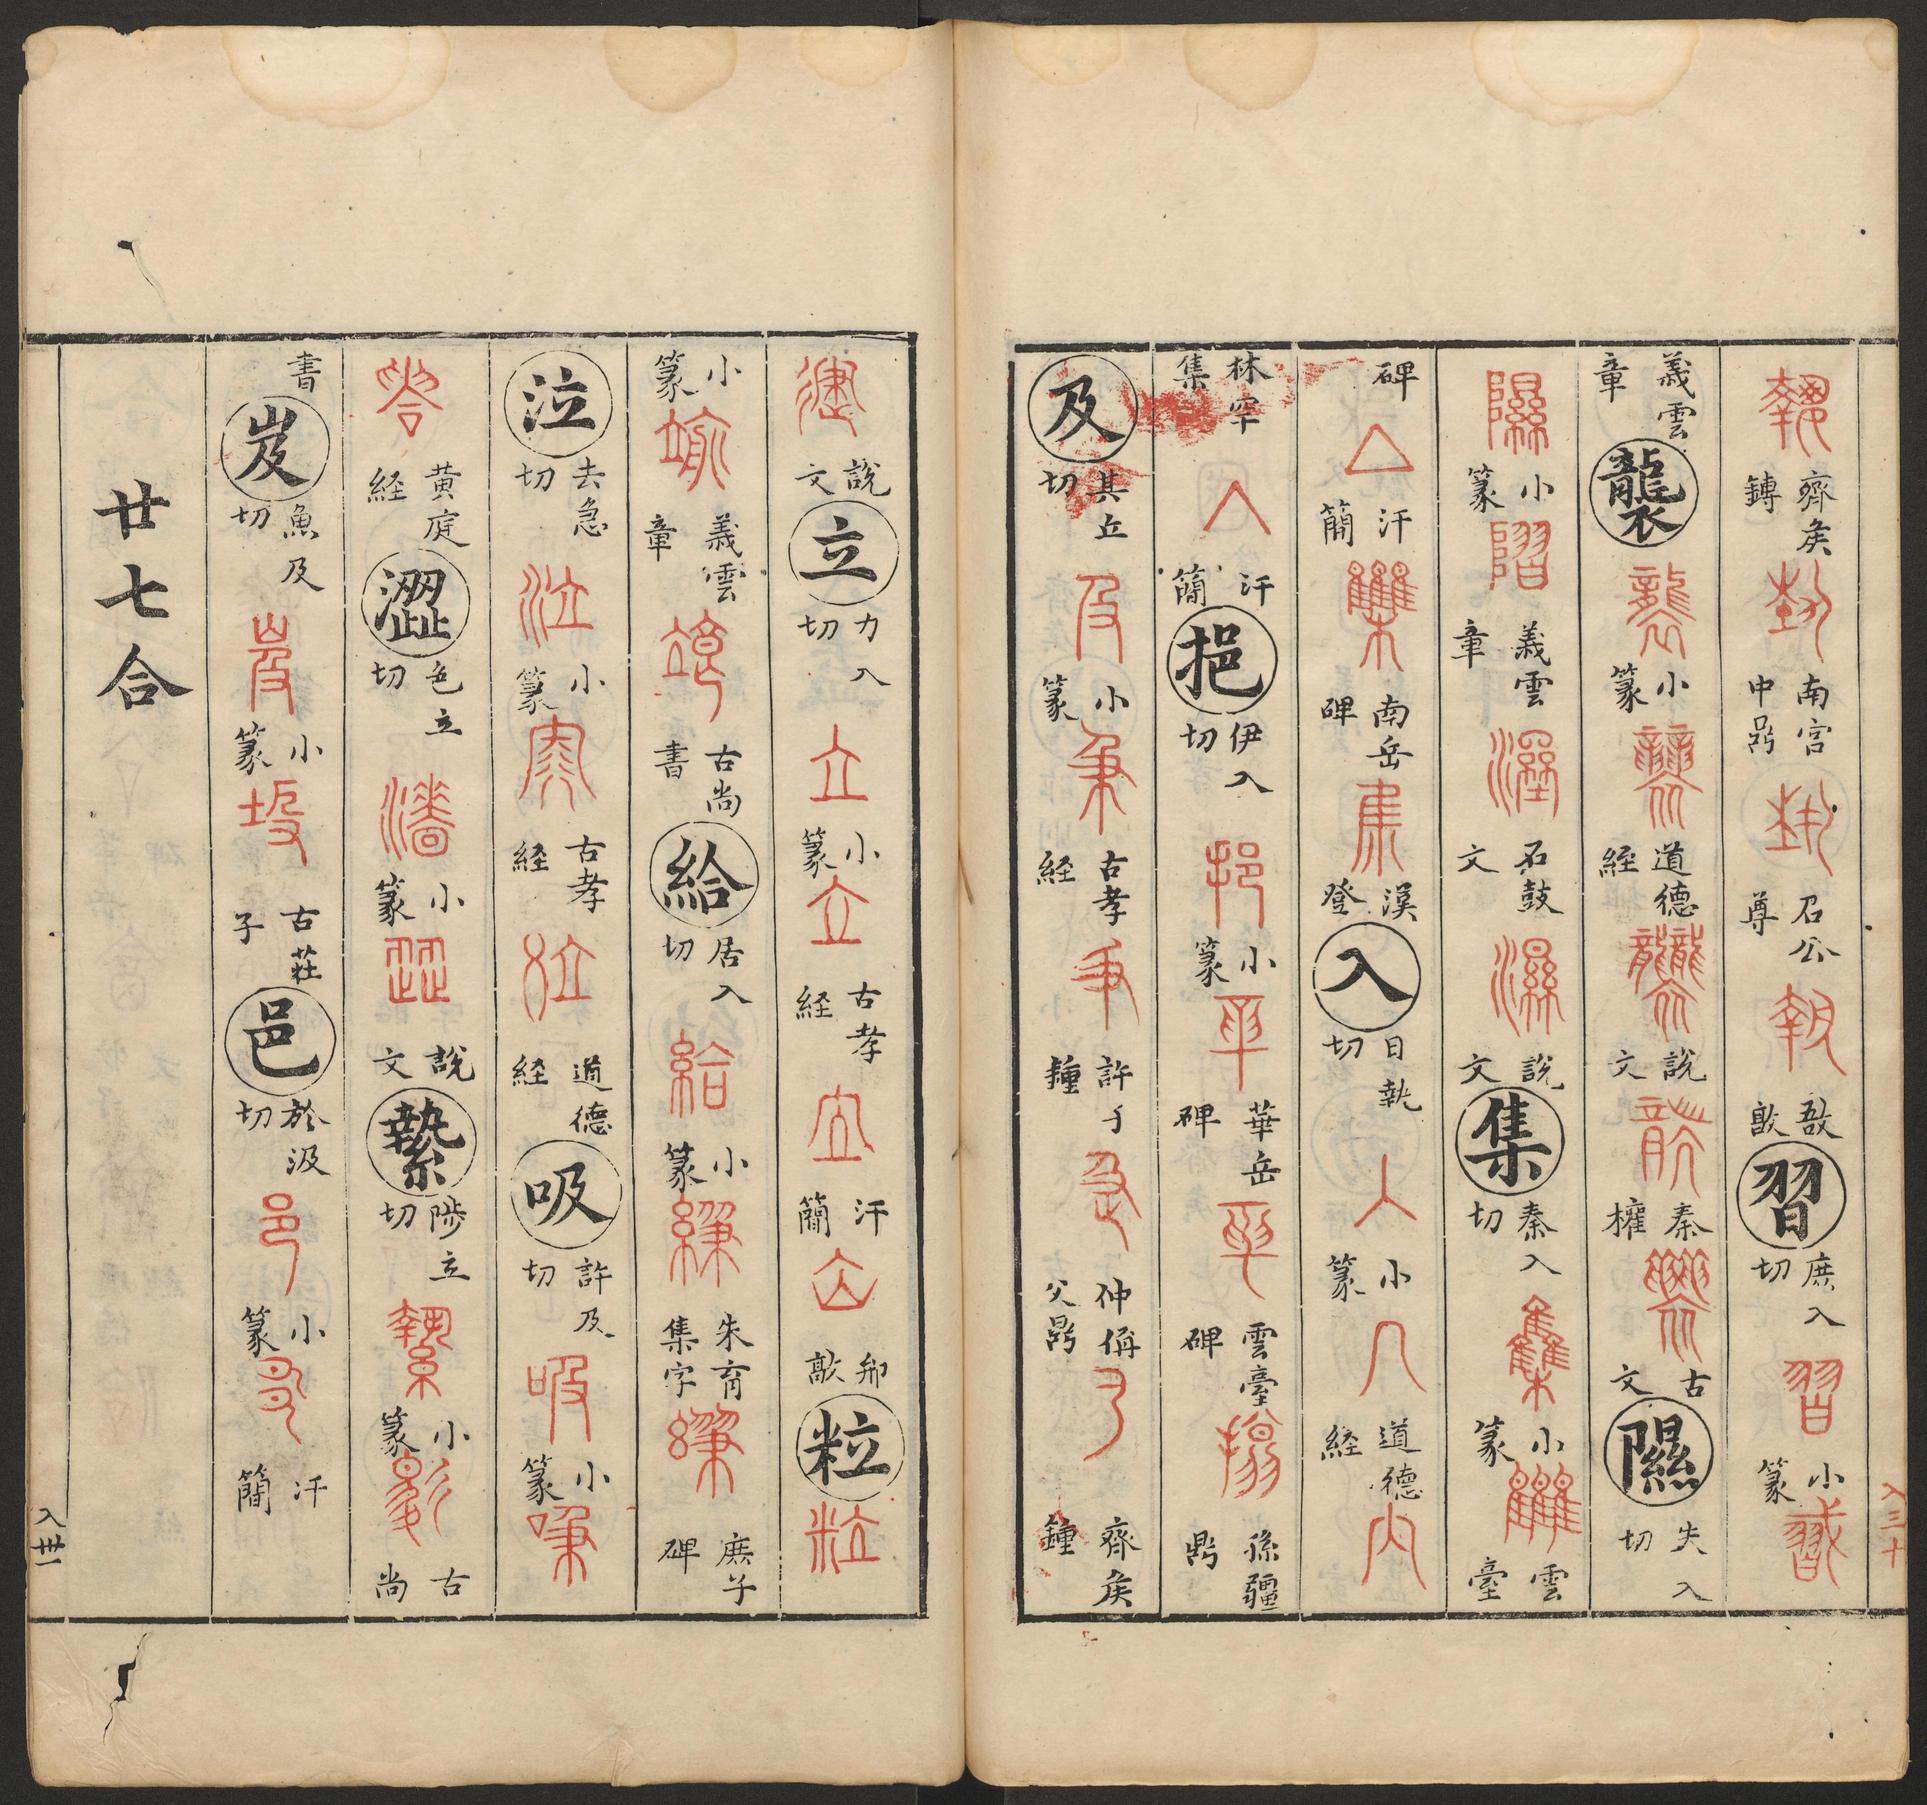 齊矦鏄 南宮中鼎 召公尊 敔敦 習 席入切 小篆
義雲章 襲 小篆 道德經 說文 秦權 古文 隰 失入切
小篆 義雲章 石鼓文 說文 集 秦入切 小篆 雲臺
碑 汗簡 南岳碑 漢登 入 日執切 小篆 道德経
林罕集 汗簡 挹 伊入切 小篆 華岳碑 雲臺碑 孫彊鼎
及 其立切 小篆 古孝経 許子鐘 仲偁父鼎 齊矦鐘
入三十
說文 立 力入切 小篆 古孝経 汗簡 𨚕敦 粒
小篆 義雲章 古尚書 給 居入切 小篆 朱育集字 庶子碑
泣 去急切 小篆 古孝経 道德経 吸 許及切 小篆
黄庭経 澀 色立切 小篆 說文 縶 陟立切 小篆 古尚
書 岌 魚及切 小篆 古莊子 邑 於汲切 小篆 汗簡
廿七合
入卅一